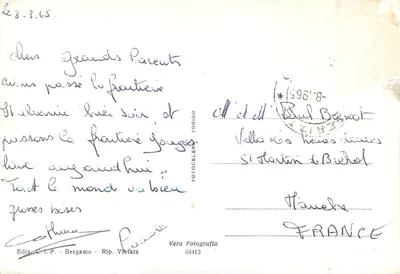 Le 3-8-65
Chers grands Parents
avons passé la frontière
Italienne hier soir, et
passons la frontière Yougos
lave aujourd'hui.
Tout le monde va bien
grosses bises
Edit. C.I.P. - Bergamo - Rip. Vietata
Vera Fotografia
64413
FOTOCELERE TORINO
M et M Paul
Villa des
St Martin de Bréhal
Manche
FRANCE